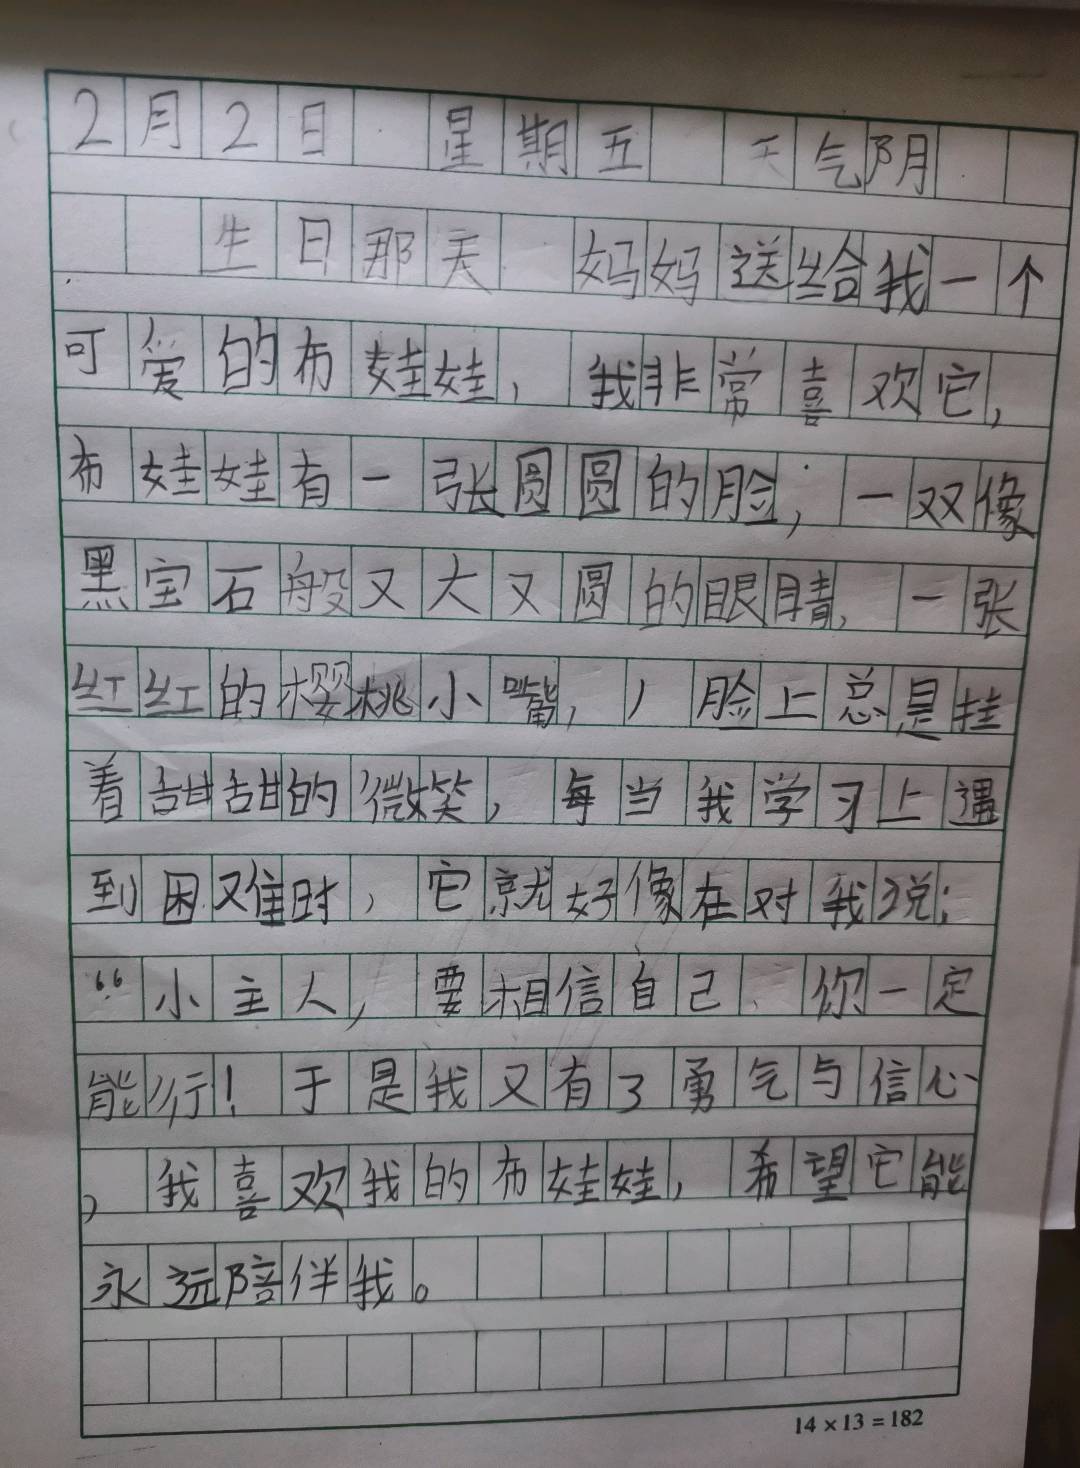 2月2日 星期五 天气阴
生日那天 妈妈送给我一个
可爱的布娃娃，我非常喜欢它，
布娃娃有一张圆圆的脸，一双像
黑宝石般又大又圆的眼睛，一张
红红的樱桃小嘴，，脸上总是挂
着甜甜的微笑，每当我学习上遇
到困难时，它就好像在对我说：
“小主人，要相信自己、你一定
能行！于是我又有了勇气与信心
，我喜欢我的布娃娃，希望它能
永远陪伴我。
14×13=182